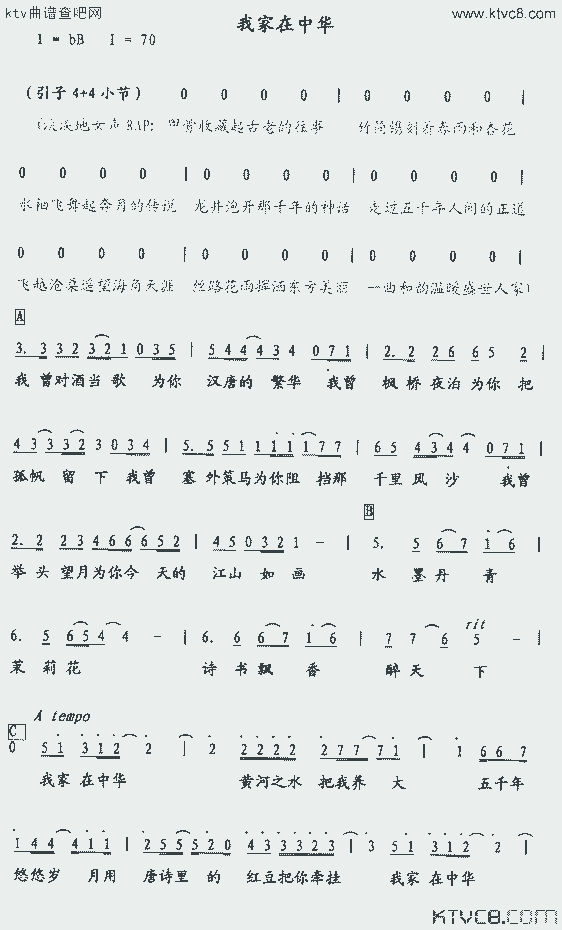 ktv曲谱查吧网 www.ktvc8.com
我家在中华
1 = bB I = 70
(引子 4+4 小节) 0 0 0 0 | 0 0 0 0 |
(淡淡地女声 RAP: 甲骨收藏起古老的往事 竹简镌刻着春雨和杏花
0 0 0 0 | 0 0 0 0 | 0 0 0 0 |
水袖飞舞起奔月的传说 龙井泡开那千年的神话 走过五千年人间的正道
0 0 0 0 | 0 0 0 0 | 0 0 0 0 |
飞越沧桑遥望海角天涯 丝路花雨挥洒东方美丽 一曲和韵温暖盛世人家)
A
3. 3 3 2 3 2 1 0 3 5 | 5 4 4 4 3 4 0 7 1 | 2. 2 2 6 6 5 2 |
我 曾对酒当歌 为你 汉唐的 繁华 我曾 枫桥夜泊为你 把
4 3 3 3 2 3 0 3 4 | 5. 5 5 1 1 1 1 1 7 7 | 6 5 4 3 4 4 0 7 1 |
孤帆 留 下 我曾 塞 外策马为你阻 挡那 千里 风 沙 我曾
B
2. 2 2 3 4 6 6 6 5 2 | 4 5 0 3 2 1 - | 5. 5 6 7 1 6 |
举 头 望月为你今 天的 江山 如 画 水 墨 丹 青
rit
6. 5 6 5 4 4 - | 6. 6 6 7 1 6 | 7 7 6 5 - |
茉 莉 花 诗 书 飘 香 醉 天 下
A tempo
C
0 5 1 3 1 2 2 | 2 2 2 2 2 2 7 7 7 1 | 1 6 6 7
我家 在中华 黄河之水 把我养 大 五千年
1 4 4 4 1 1 | 2 5 5 5 2 0 4 3 3 3 2 3 | 3 5 1 3 1 2 2 |
悠悠岁 月用 唐诗里 的 红豆把你牵挂 我家 在中华
KTVC8.COM